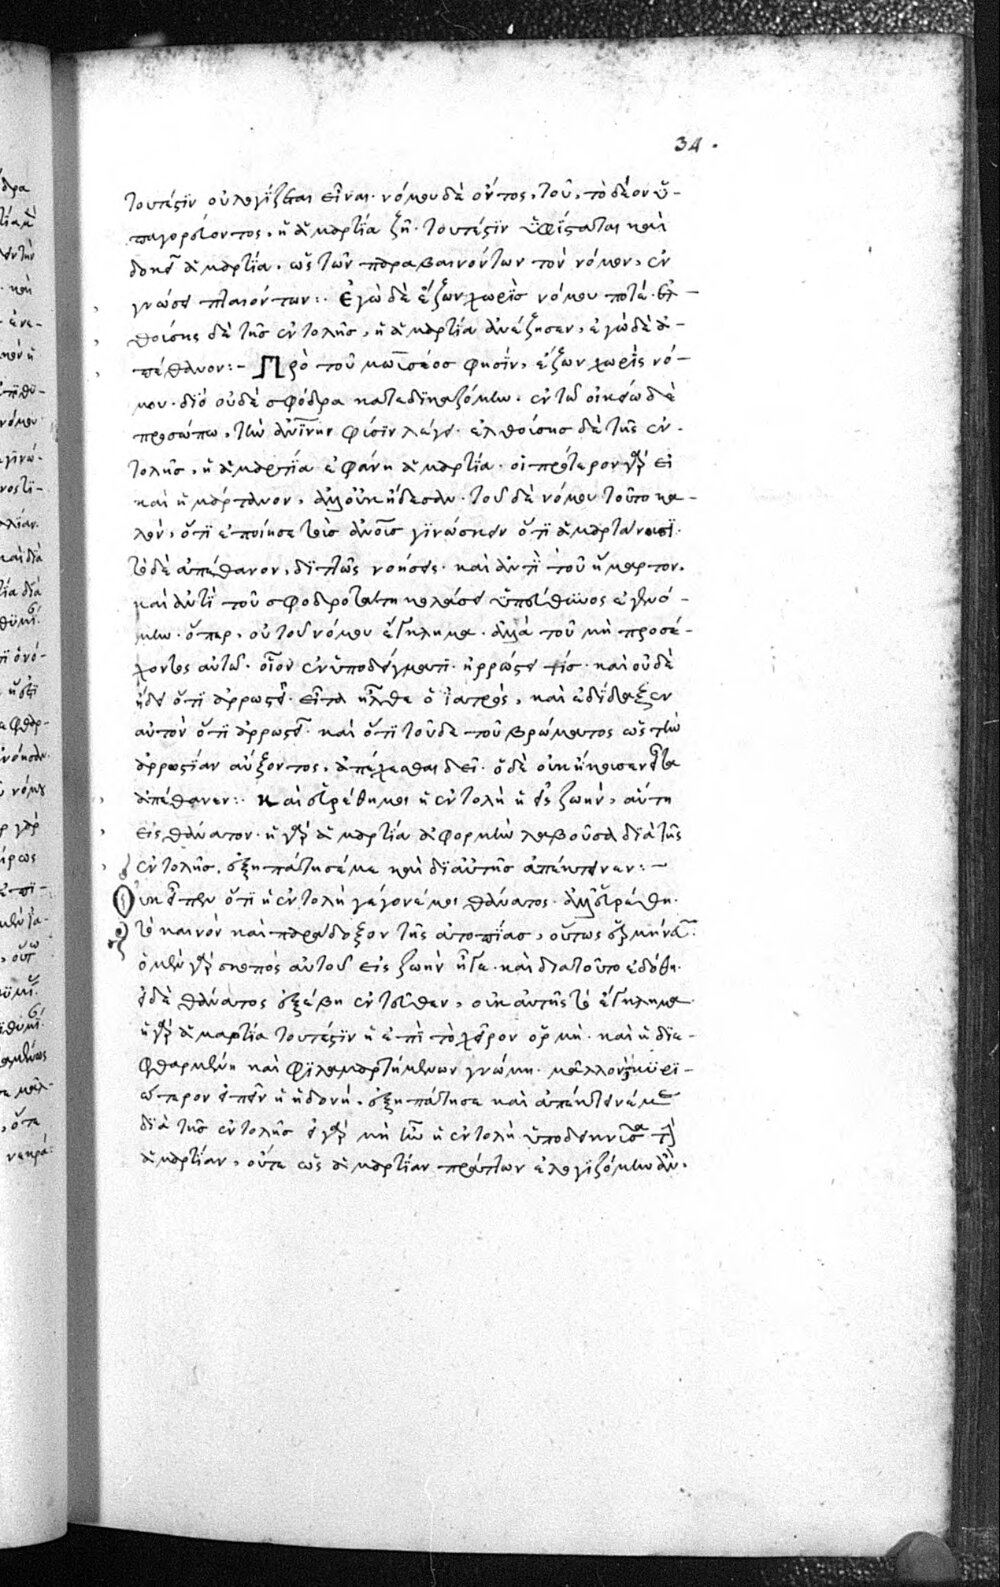 34.
τουτέστιν οὐ λογίζεται εἶναι. νόμου δὲ ὄντος, τοῦ, τὸ δέον ὑ-
παγορεύοντος, ἡ ἁμαρτία ζῆ. τουτέστιν ὑφίσταται καὶ
δοκεῖ ἁμαρτία, ὡς τῶν παραβαινόντων τὸν νόμον, ἐν
γνώσει πταιόντων:. Ἐγὼ δὲ ἔζων χωρὶς νόμου ποτέ. ἐλ-
θούσης δὲ τῆς ἐντολῆς, ἡ ἁμαρτία ἀνέζησεν, ἐγὼ δὲ ἀ-
πέθανον:- Πρὸ τοῦ μωϋσέος φησὶν, ἔζων χωρὶς νό-
μου. διὸ οὐδὲ σφόδρα κατεδικαζόμην. ἐν τῶ οἰκείω δὲ
προσώπω, τὴν ἀνίνην φύσιν λέγει. ἐλθούσης δὲ τῆς ἐν-
τολῆς, ἡ ἁμαρτία ἐφάνη ἁμαρτία. οἱ πρότερον γὰρ εἰ
καὶ ἡμάρτανον, ἀλλ' οὐκ ἤδεσαν. τοῦ δὲ νόμου τοῦτο κα-
λὸν, ὅτι ἐποίησε τοὺς ἀνους γινώσκειν ὅτι ἁμαρτάνουσι.
τὸ δὲ ἀπέθανον, διπλῶς νοήσεις. καὶ ἀντὶ τοῦ ἥμαρτον.
καὶ ἀντὶ τοῦ σφοδροτάτη κολάσει ὑπεύθυνος ἐγενό-
μην. ὅπερ, οὐ τοῦ νόμου ἔγκλημα. ἀλλὰ τοῦ μὴ προσέ-
χοντος αὐτῶ. οἷον ἐν ὑποδείγματι. ἠρρώστει τίς. καὶ οὐδὲ
ἤδει ὅτι ἀρρωστεῖ. εἶτα ἦλθε ὁ ἰατρὸς, καὶ ἐδίδαξεν
αὐτὸν ὅτι ἀρρωστεῖ. καὶ ὅτι τοῦδε τοῦ βρώματος ὡς τὴν
ἀρρωστίαν αὔξοντος, ἀπέχεσθαι δεῖ. ὁ δὲ οὐκ ἤκουσεν εἶτα
ἀπέθανεν:. καὶ εὑρέθη μοι ἡ ἐντολὴ ἡ εἰς ζωὴν, αὕτη
εἰς θάνατον. ἡ γὰρ ἁμαρτία ἀφορμὴν λαβοῦσα διὰ τῆς
ἐντολῆς, ἐξηπάτησέ με καὶ δι αὐτῆς ἀπέκτεινεν:-
Οὐκ εἶπεν ὅτι ἡ ἐντολὴ γέγονέ μοι θάνατος. ἀλλ' εὑρέθη.
τὸ καινὸν καὶ παράδοξον τῆς ἀτοπίας, οὕτως ἑρμηνεύων.
ὁ μὲν γὰρ σκοπὸς αὐτοῦ εἰς ζωὴν ἦγε. καὶ διατοῦτο ἐδόθη.
εἰ δὲ θάνατος ἐξέβη ἐντεῦθεν, οὐκ αὐτῆς τὸ ἔγκλημα.
ἡ γὰρ ἁμαρτία τουτέστιν ἡ ἐπὶ τὸ χεῖρον ὁρμὴ. καὶ ἡ διε-
φθαρμένη καὶ φιλαμαρτήμενων γνώμη. μᾶλλον δὲ κυρι-
ώτερον εἰπεῖν ἡ ἡδονή. ἐξηπάτησε καὶ ἀπέκτεινέ με
διὰ τῆς ἐντολῆς εἰ γὰρ μὴ ἦν ἡ ἐντολὴ ὑποδεικνῦσα τὴν
ἁμαρτίαν, οὔτε ὡς ἁμαρτίαν πράττων ἐλογιζόμην ἂν.